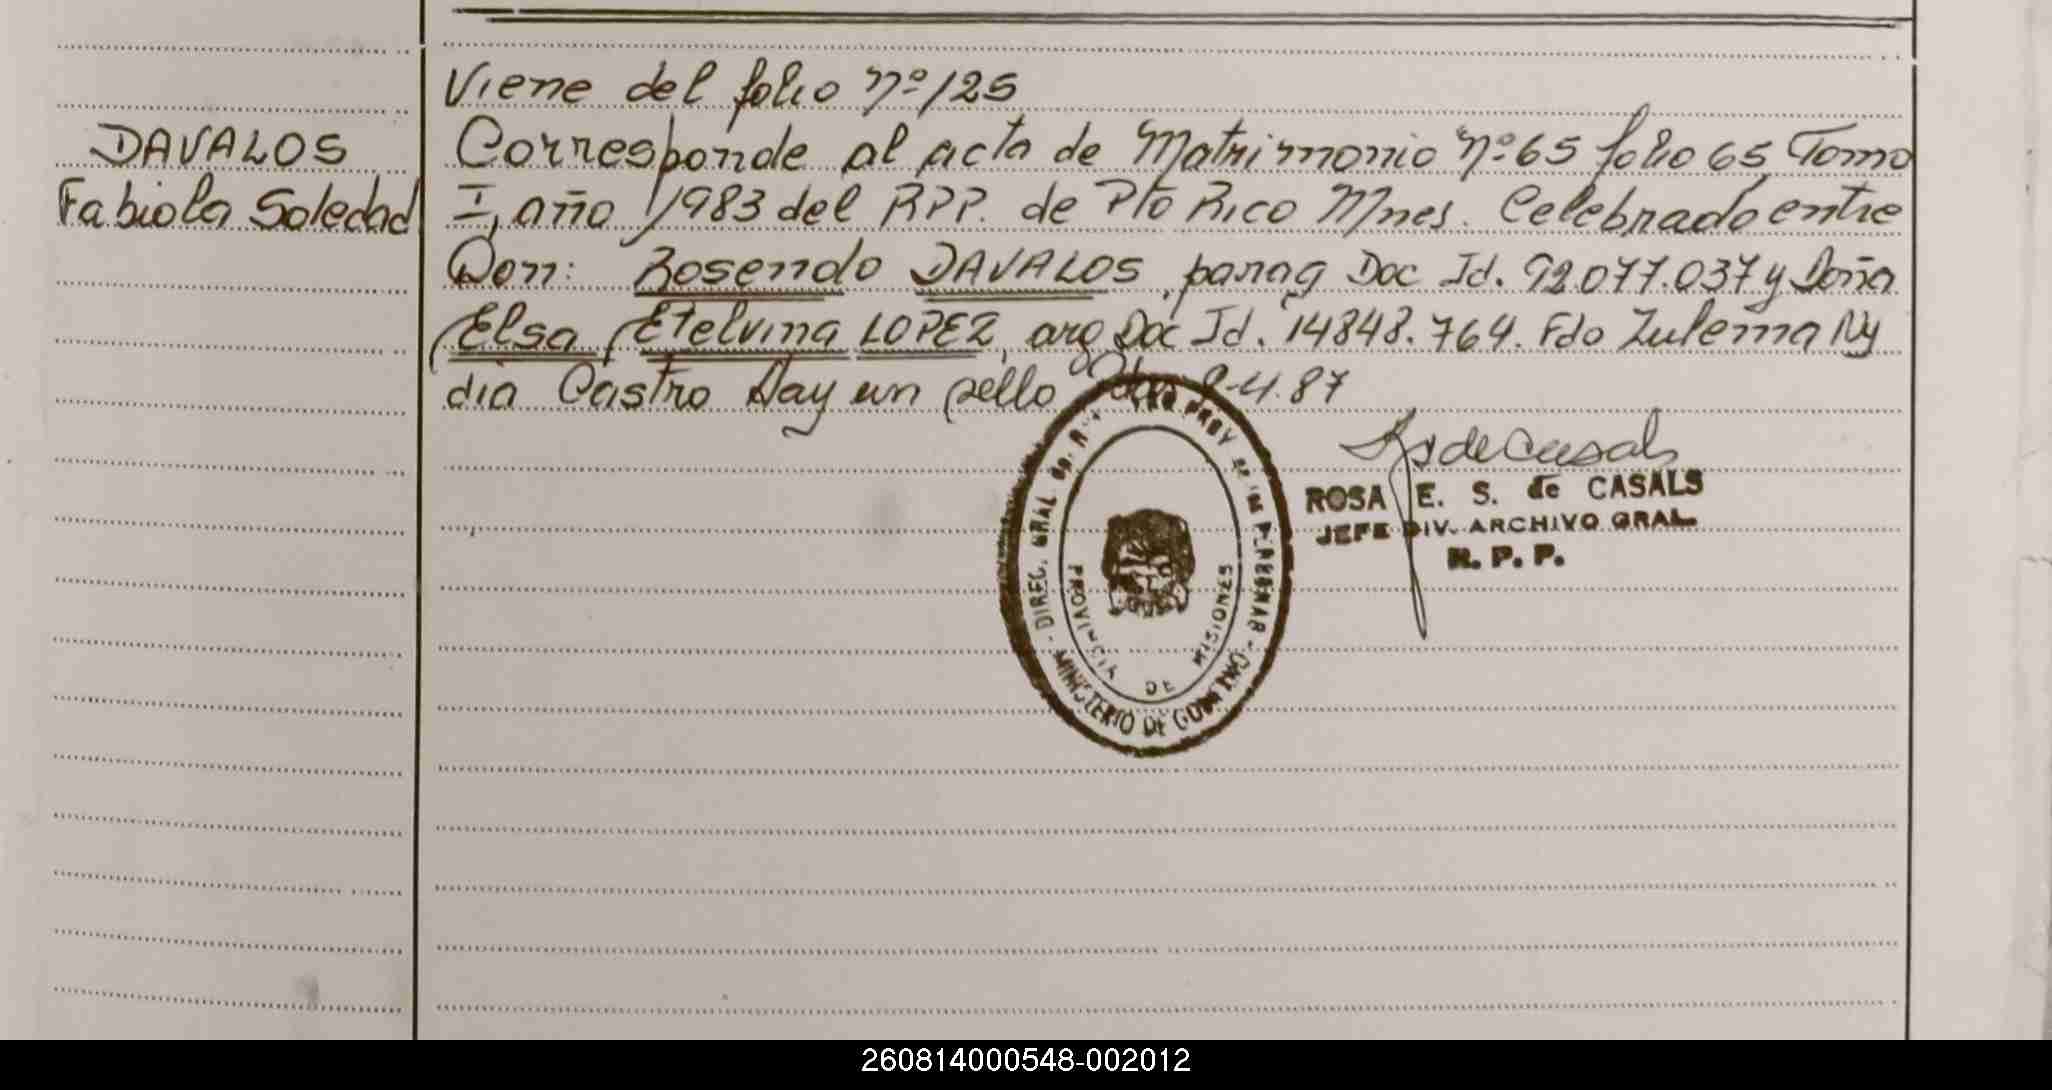 Viene del folio nº 125
DAVALOS
Fabiola Soledad
Corresponde al acta de Matrimonio nº 65 folio 65 Tomo
I, año 1983 del RPP. de Pto Rico Mnes. Celebrado entre
Don: Rosendo DAVALOS, parag Doc Id. 92.077.037 y Doña
Elsa Etelvina LOPEZ, arg Doc Id. 14848.764. Fdo Zulema Ny
dia Castro Hay un sello 4.87
ROSA E. S. de CASALS
JEFE DIV. ARCHIVO GRAL.
R. P. P.
DIREC. GRAL PERSONAS
MINISTERIO DE GOBIERNO
PROVINCIA DE MISIONES
260814000548-002012